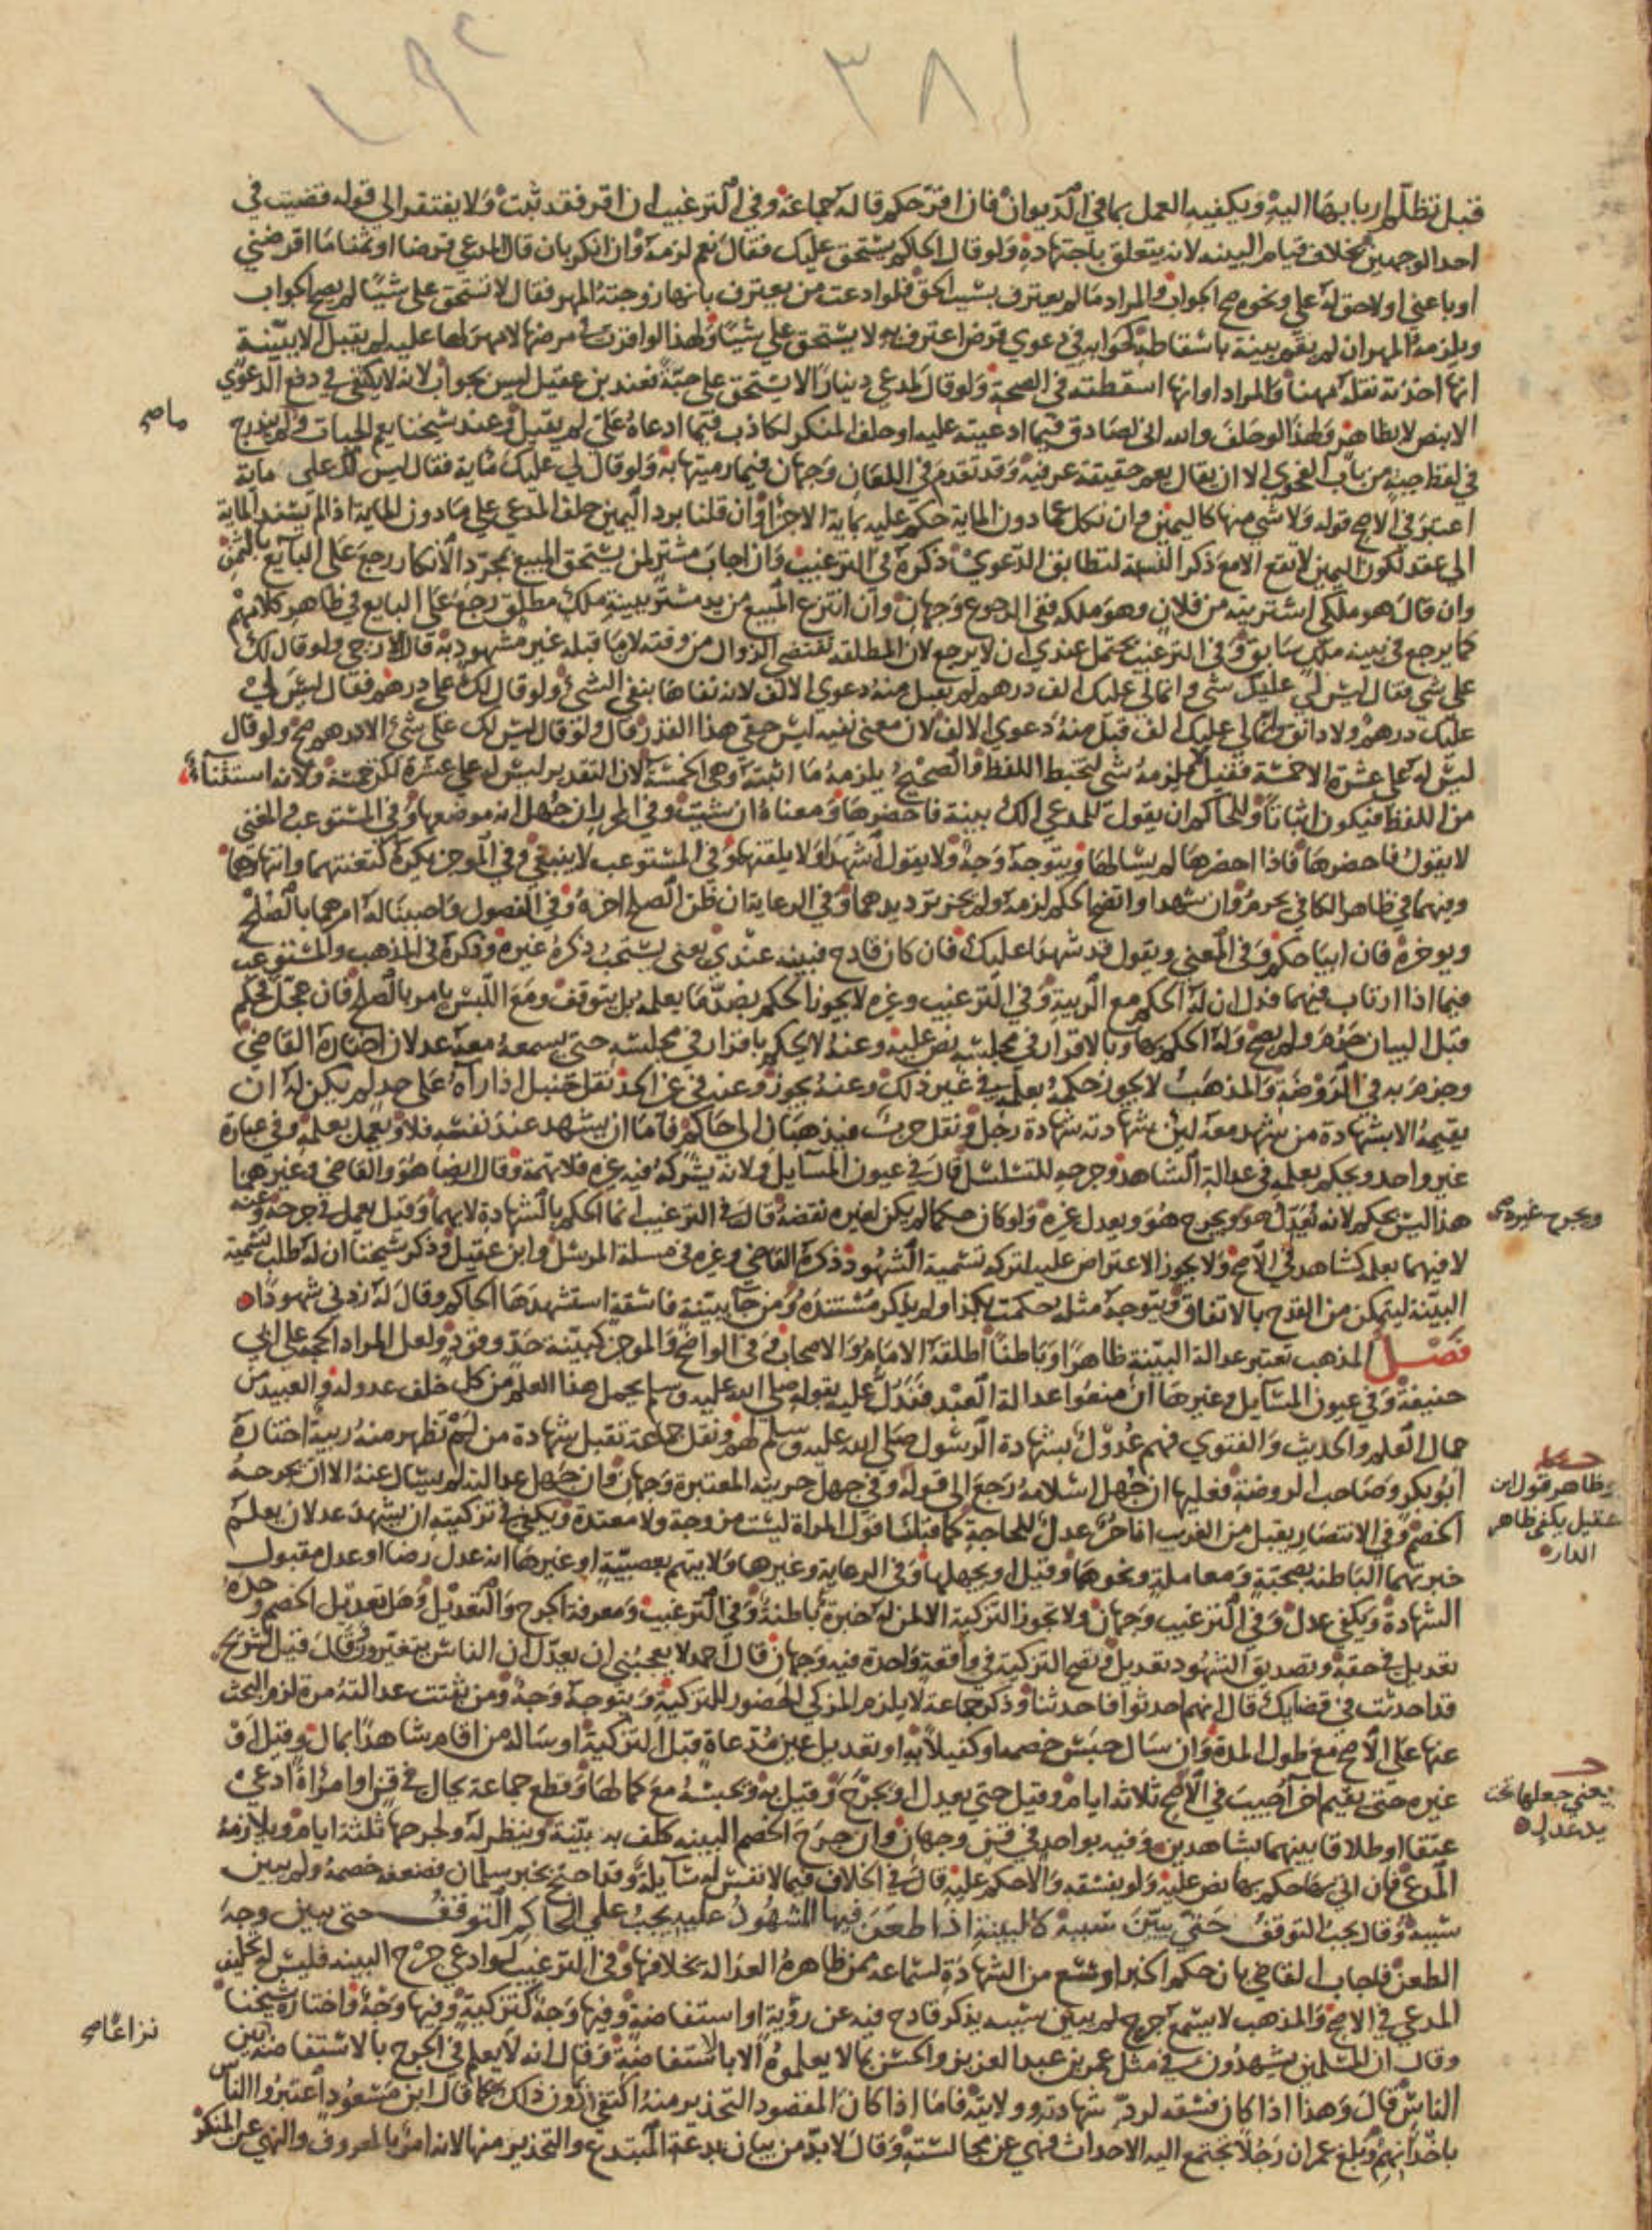 ٣٨١
قبل تظلم اربابها اليه ويكفيه العمل بما في الديوان فان اقر حكم قاله جماعة وفي الترغيب ان اقر فقد ثبت ولا يفتقر الى قوله قضيت في
احد الوجهين بخلاف قيام البينه لانه يتعلق باجتهاده ولو قال الحاكم يستحق عليك فقال نعم لزمه وان انكر بان قال المدعي قرضا او ثمنا ما اقرضني
او باعني او لا حق له علي ونحوه صح الجواب والمراد ما لم يعترف بسبب الحق فلو ادعت من يعترف بانها زوجته المهر فقال لا تستحق علي شيئا لم يصح الجواب
ويلزمه المهر ان لم يقم بينة باسقاطه كجوابه في دعوى قرض اعترف به لا يستحق علي شيئا ولهذا لو اقرت في مرضها لا مهر لها عليه لم يقبل الا ببينة
انها اخذته نقله مهنا والمراد او انها اسقطته في الصحة ولو قال لمدعي دينارا لا يستحق علي حبة فعند بن عقيل ليس بجواب لانه لا يكتفى في دفع الدعوى
الا بنص لا بظاهر ولهذا لو حلف والله اني لصادق فيما ادعيته عليه او حلف المنكر لكاذب فيما ادعاه علي لم يقبل وعند شيخنا يعم الحبات ولم يندرج
في لفظ حبة من باب الفحوى الا ان يقال يعم حقيقة عرفية وقد تقدم في اللعان وجهان فيما رميتها به ولو قال لي عليك مائة فقال ليس لك علي مائة
اعتبر في الاصح قوله ولا شي منها كاليمين وان نكل عما دون المائة حكم عليه بمائة الا جزا وان قلنا برد اليمين حلف المدعي على ما دون المائة اذا لم يسند المائة
الى عقد لكون اليمين لا تقع الا مع ذكر النسبة لتطابق الدعوى ذكره في الترغيب وان اجاب مشتر لمن يستحق المبيع بمجرد الانكار رجع على البايع بالثمن
وان قال هو ملكي اشتريته من فلان وهو ملكه ففي الرجوع وجهان وان انتزع المبيع من يد مشتر ببينة ملك مطلق رجع على البايع في ظاهر كلامهم
كما يرجع في بينة ملك سابق وفي الترغيب يحتمل عندي ان لا يرجع لان المطلقة تقتضي الزوال من وقته لان ما قبله غير مشهود به قال الازجي ولو قال لك
علي شي فقال ليس لي عليك شي وانما لي عليك الف درهم لم يقبل منه دعوى الالف لانه نفاها بنفي الشيء ولو قال لك علي درهم فقال ليس لي
عليك درهم ولا دانق وانما لي عليك الف قبل منه دعوى الالف لان معنى نفيه ليس حقي هذا القدر قال ولو قال ليس لك علي شي الا درهم صح ولو قال
ليس له علي عشرة الا خمسة فقيل لا يلزمه شي لتخبط اللفظ والصحيح يلزمه ما اثبته وهي الخمسة لان التقدير ليس له علي عشرة لكن خمسة ولانه استثناء
من اللفظ فيكون اثباتا وللحاكم ان يقول للمدعي الك بينة فاحضرها ومعناه ان شيت وفي المحرر ان جهل انه موضعها وفي المستوعب والمغني
لا يقول فاحضرها فاذا احضرها لم يسالها ويتوجه وجه ولا يقول اشهدا ولا يلقنهما وفي المستوعب لا ينبغي وفي الموجز يكره كتعنتهما وانتهارهما
وينهما في ظاهر الكافي يحرم وان شهدا واتضح الحكم لزمه ولم يجز ترديدهما وفي الرعاية ان ظن الصلح اخره وفي الفصول واحببنا له امرهما بالصلح
ويوخره فان ابيا حكم وفي المغني ويقول قد شهدا عليك فان كان قادح فبينه عندي يعني يستحب ذكره غيره وذكره في المذهب والمستوعب
فيما اذا ارتاب فيهما فدل ان له الحكم مع الريبة وفي الترغيب وغيره لا يجوز الحكم بضد ما يعلمه بل يتوقف ومع اللبس يامر بالصلح فان عجل فحكم
قبل البيان حرم ولم يصح وله الحكم بها وبالاقرار في مجلسه نص عليه وعنه لا يحكم باقرار في مجلسه حتى يسمعه معه عدلان اختاره القاضي
وجزم به في الروضة والمذهب لا يجوز حكمه بعلمه في غير ذلك وعنه يجوز وعنه في غير الحد نقل حنبل اذا رآه على حد لم يكن له ان
يقيمه الا بشهادة من شهد معه لان شهادته شهادة رجل ونقل حرب فيذهبان الى حاكم فاما ان يشهد عند نفسه فلا ويعمل بعلمه وفي عبارة
غير واحد ويحكم بعلمه في عدالة الشاهد وجرحه للتسلسل قال في عيون المسايل ولانه يشركه فيه غيره فلا تهمة وقال ايضا هو والقاضي وغيرهما
هذا ليس بحكم لانه يعدل هو ويجرح هو ويعدل غيره ولو كان حكما لم يكن لغيره نقضه قال في الترغيب انما الحكم بالشهادة لا بهما وقيل يعمل في جرحه وعنه
لا فيهما بعلمه كشاهد في الاصح ولا يجوز الاعتراض عليه لتركه تسمية الشهود ذكره القاضي وغيره في مسلة المرسل وابن عقيل وذكر شيخنا ان له طلب تسمية
البينة ليتمكن من القدح بالاتفاق ويتوجه مثله حكمت بكذا ولم يذكر مستنده ومن جا ببينة فاسقة استشهدها الحاكم وقال له زدني شهودا
فصل المذهب تعتبر عدالة البينة ظاهرا وباطنا اطلقه الامام والاصحاب وفي الواضح والموجز كبينة حد وقود ولعل المراد الحجة على ابي
حنيفة وفي عيون المسايل وغيرها ان منعوا عدالة العبد فندل عليه بقوله صلى الله عليه وسلم يحمل هذا العلم من كل خلف عدوله والعبيد من
حمال العلم والحديث والفتوى فهم عدول بشهادة الرسول صلى الله عليه وسلم لهم ونقل جماعة تقبل شهادة من لم تظهر منه ريبة اختاره
ابو بكر وصاحب الروضة فعليها ان جهل اسلامه رجع الى قوله وفي جهل حريته المعتبرة وجهان وان جهل عدالته لم يسال عنه الا ان يجرحه
الخصم وفي الانتصار يقبل من الغريب انا حر عدل للحاجة كما قبلنا قول المراة ليست مزوجة ولا معتدة ويكفي في تزكيته ان يشهد عدلان يعلم
خبرتهما الباطنة بصحبة ومعاملة ونحوهما وقيل او يجهلها وفي الرعاية وغيرها ولا يتهم بعصبية او غيرها انه عدل رضا او عدل مقبول
الشهادة ويكفي عدل وفي الترغيب وجهان ولا تجوز التزكية الا لمن له خبرة باطنة وفي الترغيب ومعرفة الجرح والتعديل وهل تعديل الخصم وحده
تعديل في حقه وتصديق الشهود تعديل وتصح التزكية في واقعة واحدة فيه وجهان قال احمد لا يعجبني ان يعدل ان الناس يتغيرون وقال قيل لشريح
قد احدثت في قضايك قال انهم احدثوا فاحدثنا وذكر جماعة لا يلزم المزكي الحضور للتزكية ويتوجه وجه ومن ثبتت عدالته مرة لزم البحث
عنها على الاصح مع طول المدة وان سال حبس خصمه او كفيلا به او تعديل عين مدعاة قبل التزكية او ساله من اقام شاهدا بمال وقيل او
غيره حتى يقيم اخر اجيب في الاصح ثلاثة ايام وقيل حتى يعدل او يجرح وقيل به ونحبسه مع كمالها وقطع جماعة يحال في قن او امراة ادعي
عتقا او طلاقا بينهما بشاهدين وفيه بواحد في قن وجهان وان جرح الخصم البينه كلف به بينة وينظر له ولجرحها ثلثة ايام ويلازمه
المدعي فان اتى بها حكم بها نص عليه ولو بفسقه والا حكم عليه قال في الخلاف فيما لا نفس له سايلة وقد احتج بخبر سلمان فضعفه خصمه ولم يبين
سببه وقال يجب التوقف حتى يبين سببه كالبينة اذا طعن فيها المشهود عليه يجب على الحاكم التوقف حتى يبين وجه
الطعن فاجاب القاضي بان حكم الخبر اوسع من الشهادة لسماعه ممن ظاهره العدالة بخلافها وفي الترغيب لو ادعى جرح البينه فليس له تحليف
المدعي في الاصح والمذهب لا يسمع جرح لم يبين سببه بذكر قادح فيه عن رؤية او استفاضة وفيها وجه كتزكية وفيها وجه واختاره شيخنا
وقال ان المسلمين يشهدون في مثل عمر بن عبد العزيز والحسن بما لا يعلموه الا بالاستفاضة وقال انه لا يعلم في الجرح بالاستفاضة بين
الناس قال وهذا اذا كان فسقه لرد شهادته وولايته فاما اذا كان المقصود التحذير منه اكتفي بدون ذلك كما قال ابن مسعود اعتبروا الناس
باخدانهم وبلغ عمر ان رجلا تجتمع اليه الاحداث فنهى عن مجالسته وقال لا بد من بيان بدعة المبتدع والتحذير منها لانه امر بالمعروف والنهي عن المنكر
ويجرح غيره صح
وظاهر قول ابن
عقيل يكفي ظاهر
الدار
يعني جعلها تحت
يد عدل
نزاعا صح